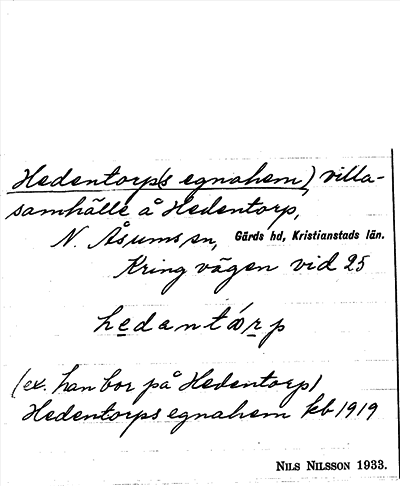 Hedentorp(s egnahem), villa-
samhälle å Hedentorp,
N. Åsums sn, Gärds hd, Kristianstads län.
Kring vägen vid 25
hedantǻrp
(ex. han bor på Hedentorp)
Hedentorps egnahem kb 1919
NILS NILSSON 1933.